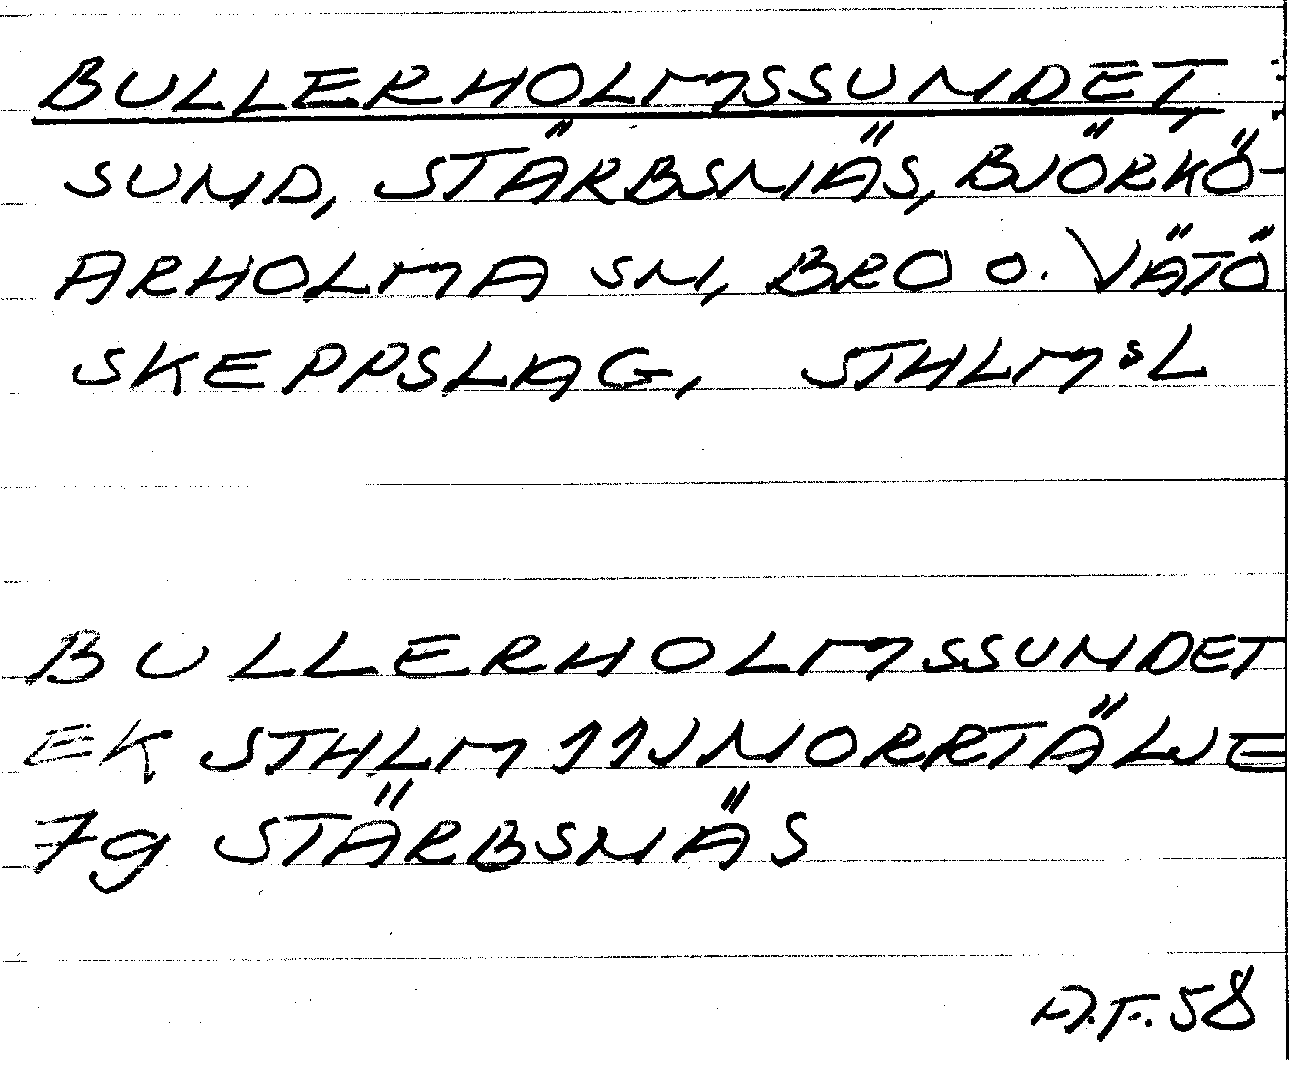 BULLERHOLMSSUNDET,
SUND, STÄRBSNÄS, BJÖRKÖ-
ARHOLMA SN, BRO O. VÄTÖ
SKEPPSLAG, STHLM:S L
BULLERHOLMSSUNDET
EK STHLM 11J NORRTÄLJE
7g STÄRBSNÄS
A.F. 58